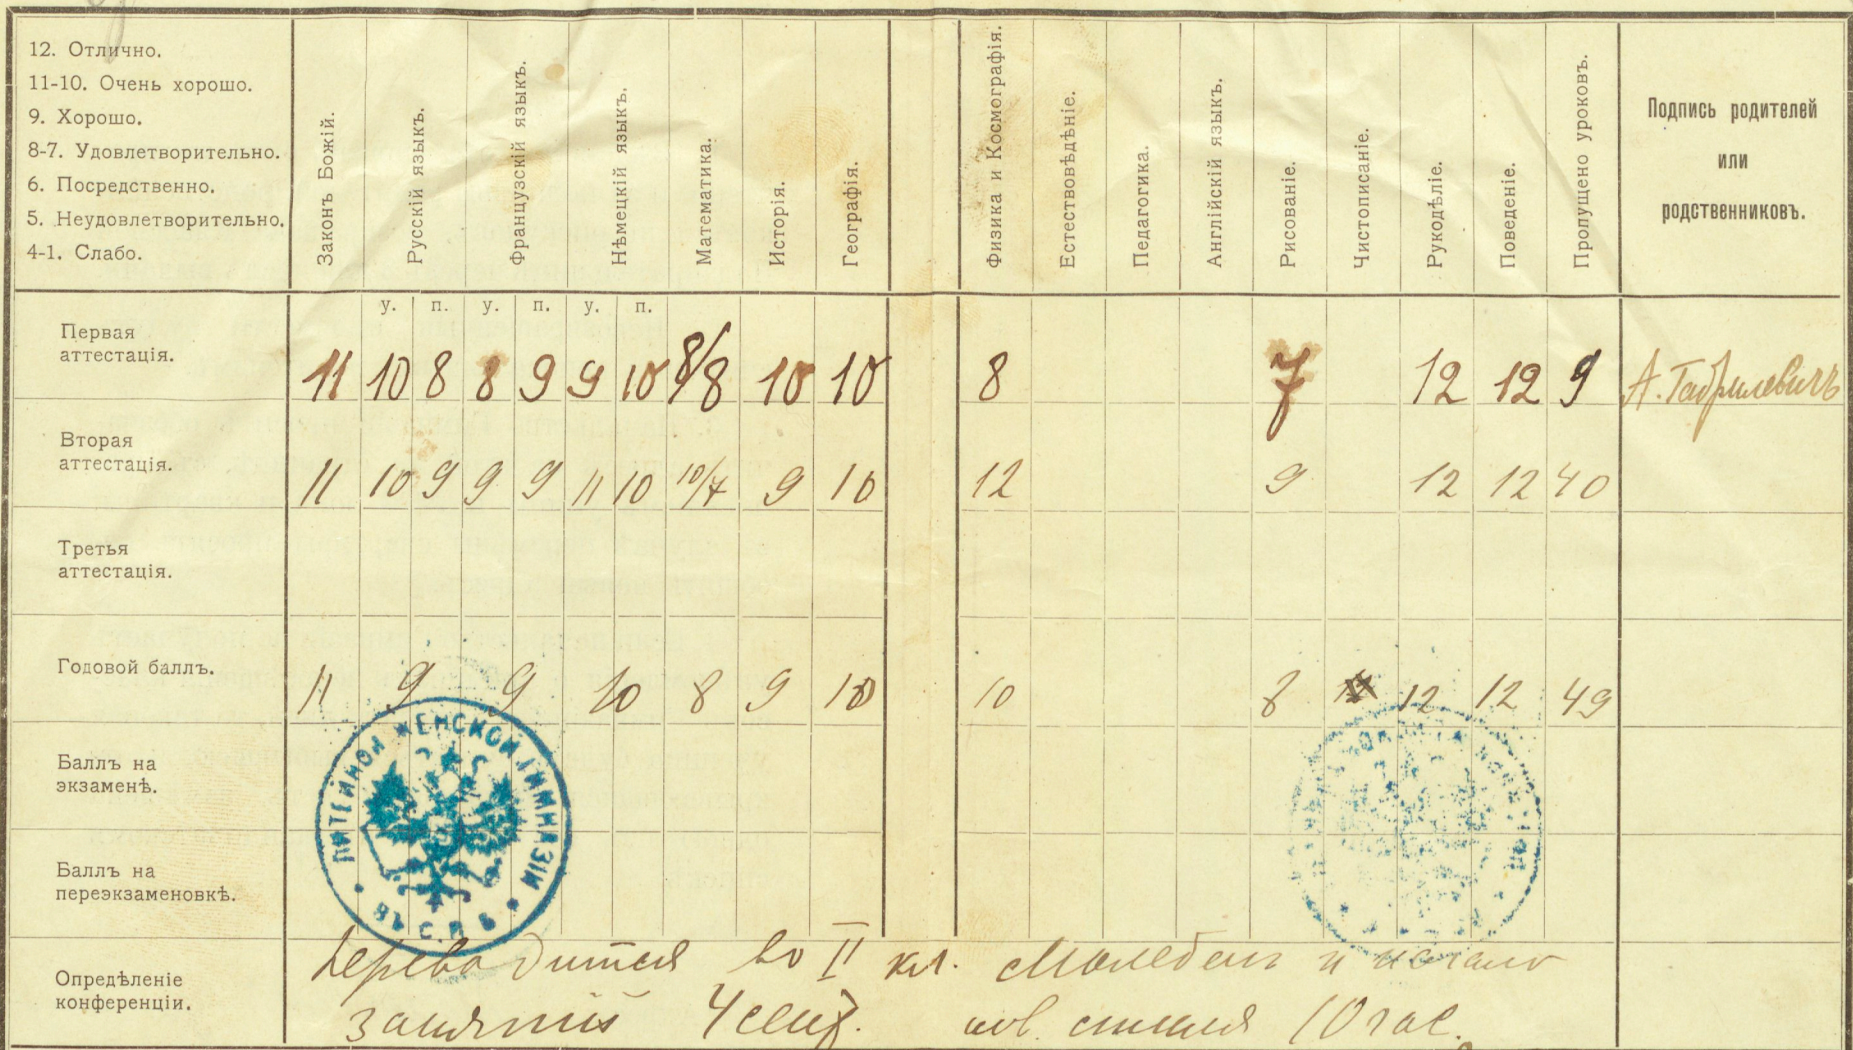 12. Отлично.
11-10. Очень хорошо.
9. Хорошо.
8-7. Удовлетворительно.
6. Посредственно.
5. Неудовлетворительно.
4-1. Слабо.
Законъ Божій.
Русскій языкъ.
Французскій языкъ.
Нѣмецкій языкъ.
Математика.
Исторія.
Географія.
Физика и Космографія.
Естествовѣдѣніе.
Педагогика.
Англійскій языкъ.
Рисованіе.
Чистописаніе.
Рукодѣліе.
Поведеніе.
Пропущено уроковъ.
Подпись родителей
или
родственниковъ.
у. п. у. п. у. п.
Первая
аттестація.
11 10 8 8 9 9 10 8/8 10 10 8 7 12 12 9 А. Габрилевичъ
Вторая
аттестація.
11 10 9 9 9 11 10 10/7 9 10 12 9 12 12 40
Третья
аттестація.
Годовой баллъ.
11 9 9 10 8 9 10 10 8 12 12 49
ЛИТЕЙНОЙ ЖЕНСКОЙ ГИМНАЗІИ
ВЪ С.П.Б.
Баллъ на
экзаменѣ.
Баллъ на
переэкзаменовкѣ.
Опредѣленіе
конференціи.
Переводится во II кл. Молебенъ и начало
занятій 4 сент. нов. стиля 10 час.